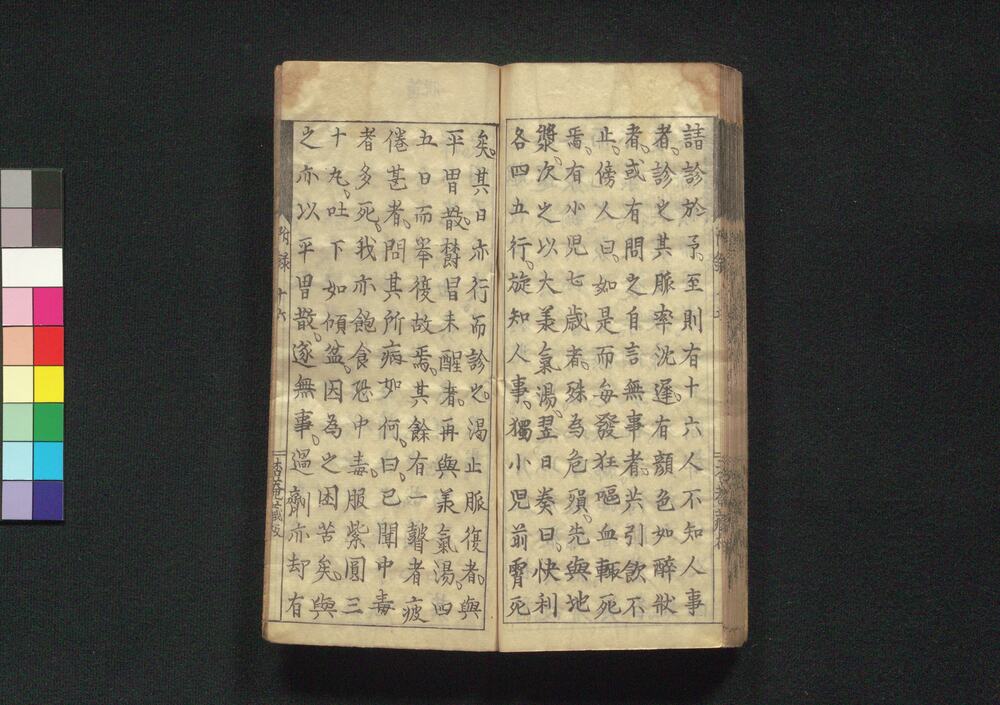 請診於予。至則有十六人不知人事
者。診之其脈率沈遲。有顏色如醉狀
者。或有問之自言無事者。共引飲不
止。傍人曰。如是而每發狂嘔血輙死
焉。有小兒七歲者。殊為危殞。先與地
漿。次之以大羕氣湯。翌日奏曰。快利
各四五行。旋知人事。獨小兒前霄死
矣。其日亦行而診之。渴止脈復者。與
平胃散。欝冒未醒者。再與羕氣湯。四
五日而率復故焉。其餘有一瞽者疲
倦甚者。問其所病如何。曰。已聞中毒
者多死。我亦飽食恐中毒。服紫圓三
十丸。吐下如傾盆。因為之困苦矣。與
之亦以平胃散。遂無事。過劑亦却有
附錄 十六